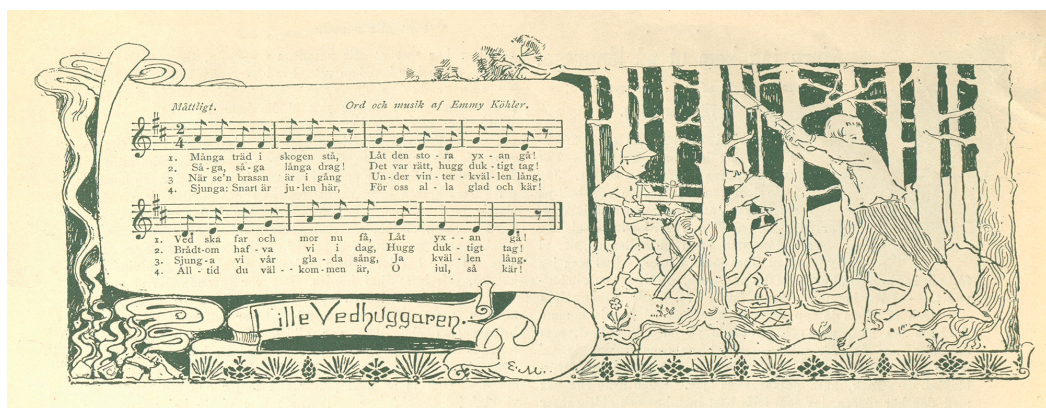 Måttligt. Ord och musik af Emmy Köhler.
2
4
1. Många träd i skogen stå, Låt den sto - ra yx - an gå!
2. Så - ga, så - ga långa drag! Det var rätt, hugg duk - tigt tag!
3 När se'n brasan är i gång Un - der vin - ter - kväl - len lång,
4. Sjunga: Snart är ju - len här, För oss al - la glad och kär!
1. Ved ska far och mor nu få, Låt yx - - an gå!
2. Brådt - om haf - va vi i dag, Hugg duk - tigt tag!
3. Sjung - a vi vår gla - da sång, Ja kväl - len lång.
4. All - tid du väl - - kom - men är, O jul, så kär!
Lille Vedhuggaren.
E.M.